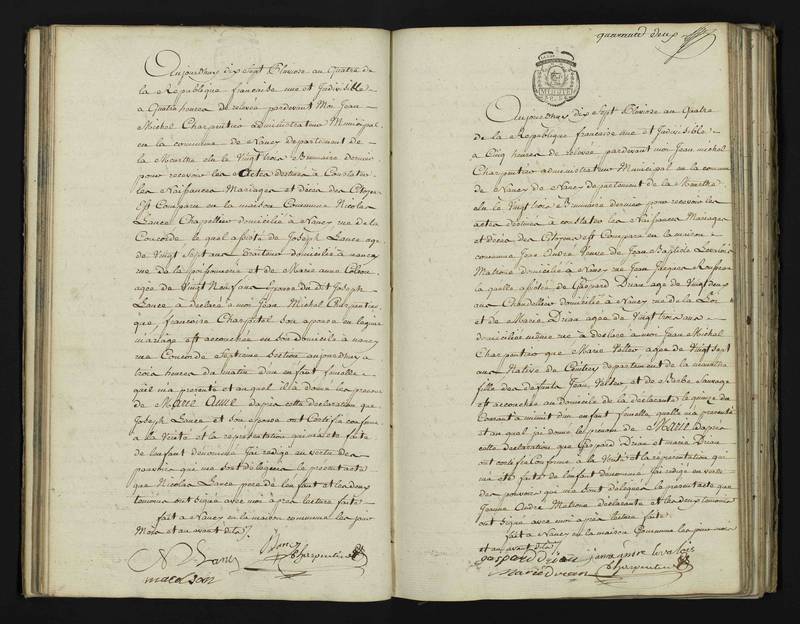 Aujourdhuy dix Sept Pluviose an Quatre de
la Republique francaise une et Indivisible
a Quatre heures de relevée pardevant Moi Jean
Michel Charpentier administrateur Municipal
en la commune de Nancy departement de
la Meurthe elu le Vingt trois Brumaire dernier
pour recevoir les Actes destinés a Constater
les Naissances Mariages et décès des Citoyens
Est Comparu en la maison Commune Nicolas
Lance Chapellier domicilié à Nancy rue de la
Concorde le quel assisté de Joseph Lance agé
de Vingt Sept ans domicilié a nancy
rue de la poissonnerie et de Marie anne
agée de Vingt Neuf ans Epouse du dit Joseph
Lance a déclaré a moi Jean Michel Charpentier
que francoise son epouse en légime
mariage est accouchée en son domicile a nancy
rue Concorde Septieme Section aujourdhuy a
trois heures du matin d'un enfant femelle
qu'il m'a presenté et au quel il a donné les prenoms
de Marie Anne dapres cette declaration que
Joseph Lance et son epouse ont Certifié conforme
a la Verité et la représentation qui m'a eté faite
de l'enfant denommé J'ai redigé en vertu des
pouvoirs qui me sont délégués le present acte
que Nicolas Lance pere de l'enfant et les deux
temoins ont Signé avec moi après lecture faite
fait a Nancy en la maison commune les jour
Mois et an avant dits
N Lance Lance Charpentier

quarante deux
Aujourdhuy dix Sept Pluviose an Quatre
de la Republique francaise une et Indivisible
a Cinq heures de relevée pardevant moi Jean michel
Charpentier administrateur Municipal en la commune
de Nancy departement de la Meurthe
elu le Vingt trois Brumaire dernier pour recevoir les
actes destinés a constater les Naissances Mariages
et décès des Citoyens est Comparu en la maison
commune Jeanne Andre Veuve de Jean Baptiste Levalois
Matrone domiciliée a Nancy rue Jean Jacques Rousseau
la quelle assistée de Gaspard Drian agé de Vingt deux
ans Chandellier domicilié a Nancy rue de la Loi
et de Marie Drian agée de Vingt trois ans
domiciliée même rue a déclaré a moi Jean Michel
Charpentier que Marie agée de Vingt Sept
ans Native de departement de la meurthe
fille des defunts Jean et de Barbe Sauvage
est accouchée au domicile de la déclarante le quinze du
Courant a minuit d'un enfant femelle quelle m'a presenté
et au quel j'ai donné le prenom de Marie dapres
cette declaration que Gaspard Drian et marie Drian
ont certifié Conforme a la Verité et la représentation qui
m'a eté faite de l'enfant denommé J'ai redigé en vertu
des pouvoirs qui me sont délégués le present acte que
Jeanne Andre Matrone déclarante et les deux temoins
ont Signé avec moi apres lecture faite
fait a Nancy en la maison Commune les jour mois
et an avant dits
Gaspard Drian jeanne andre levalois
Marie Drian Charpentier